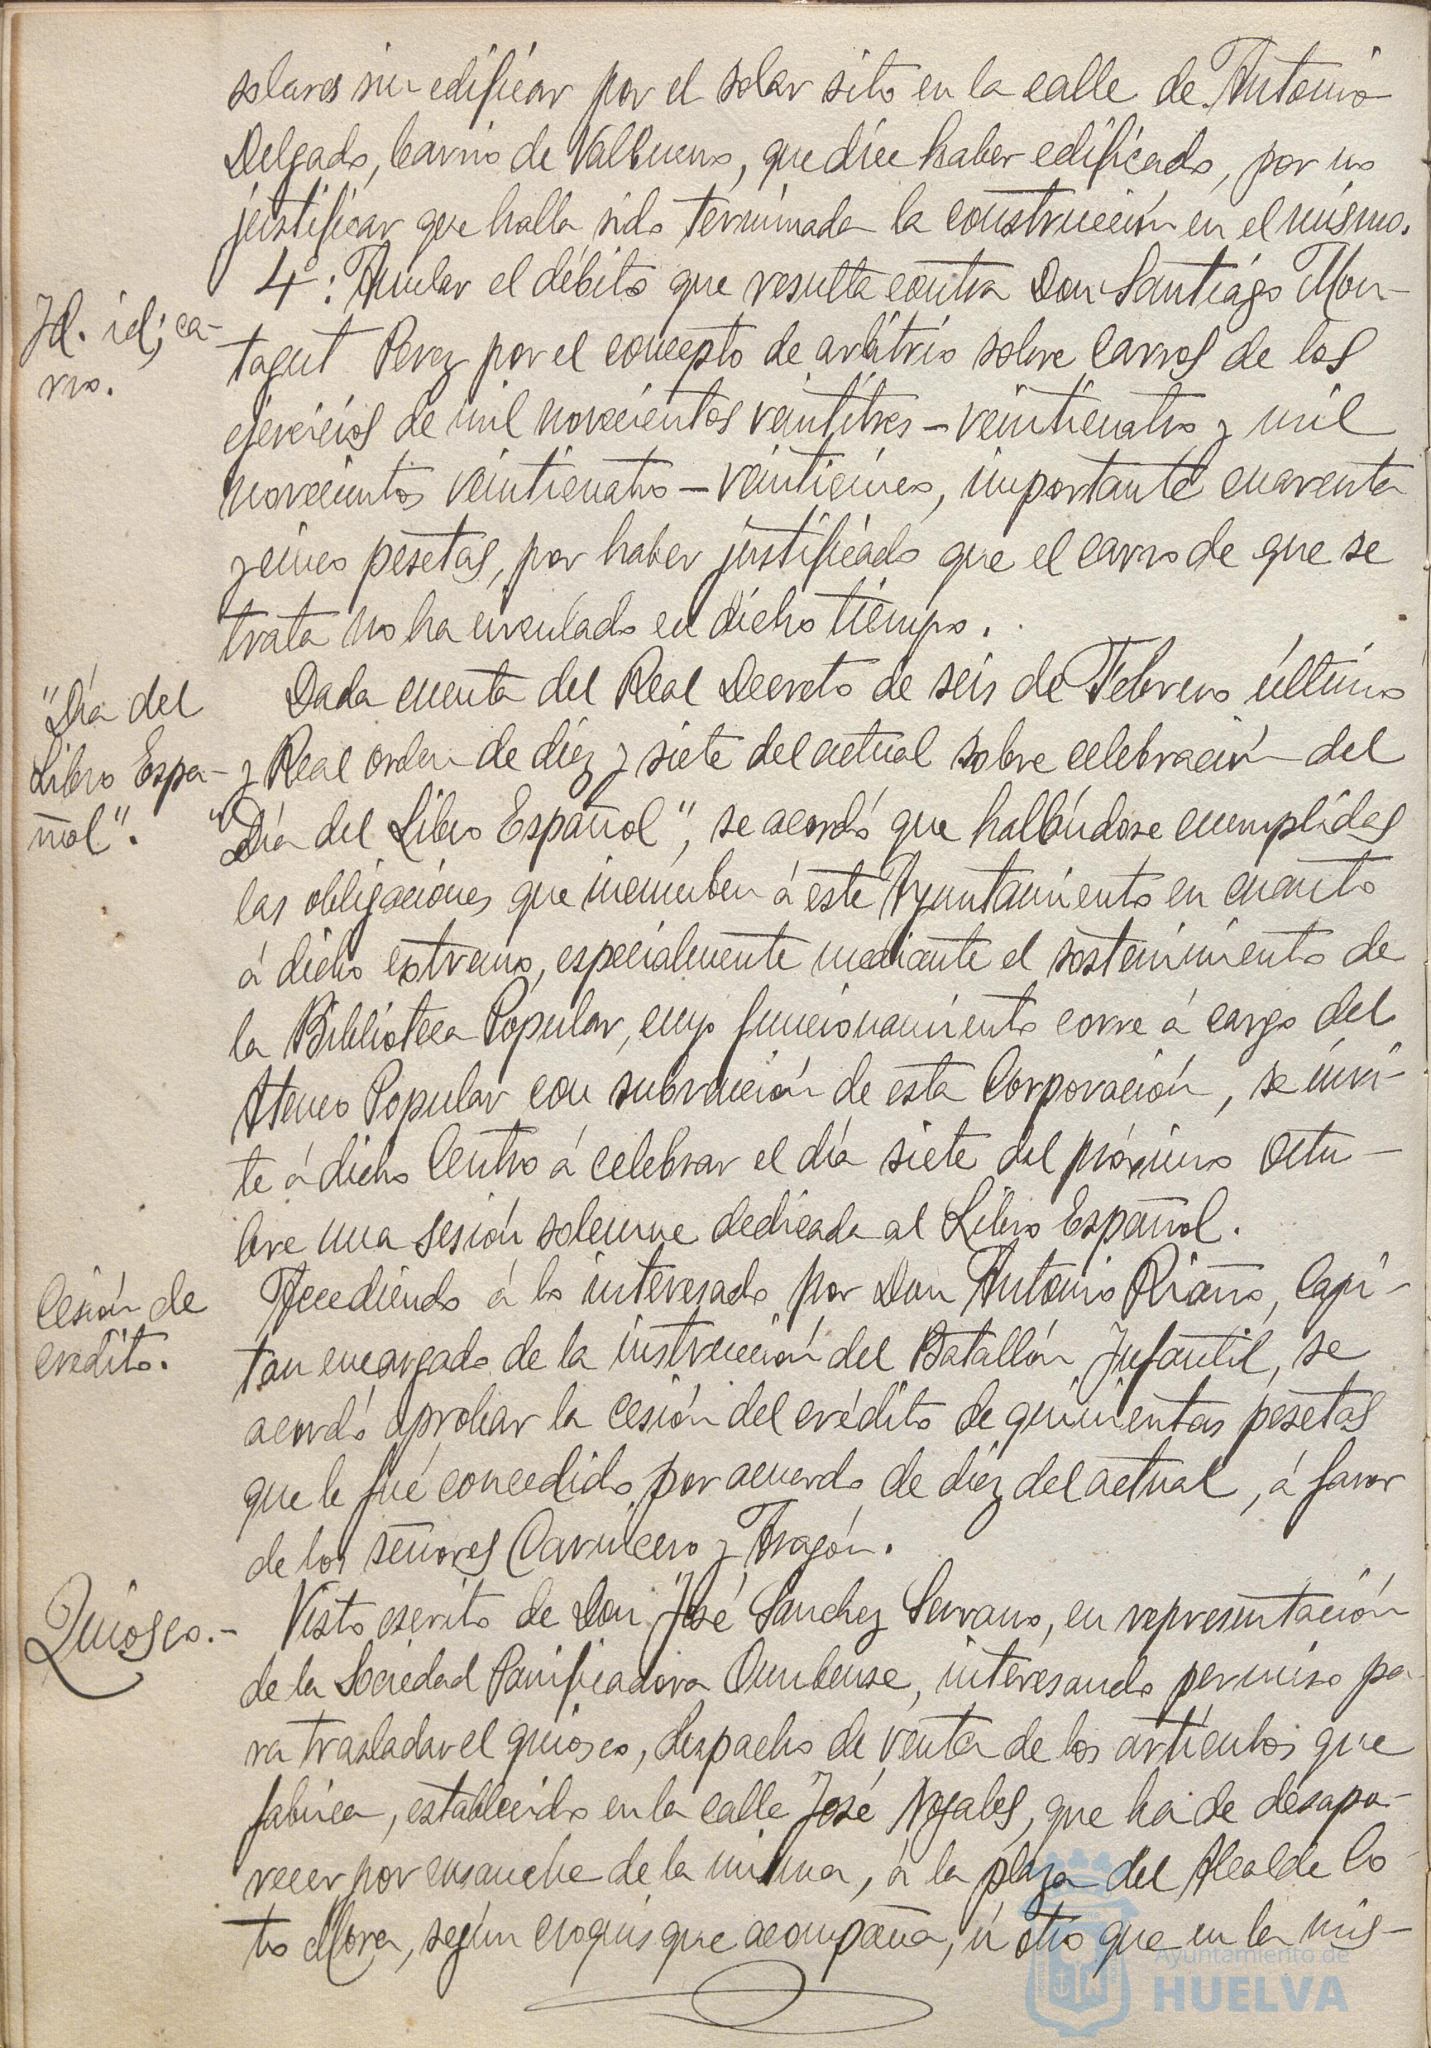 solares sin edificar por el solar sito en la calle de Antonio
Delgado, barrio de Valbueno, que dice haber edificado, por no
justificar que halla sido terminada la construcción en el mismo.
Id. id; ca-
rro.
4º: Anular el débito que resulta contra Don Santiágo Mon-
tagut Perez por el concepto de arbitrio sobre carros de los
ejercicios de mil novecientos veintitres - veinticuatro y mil
novecientos veinticuatro - veinticinco, importante cuarenta
y cinco pesetas, por haber justificado que el carro de que se
trata no ha circulado en dicho tiempo.
"Día del
Libro Espa-
ñol".
Dada cuenta del Real Decreto de seis de Febrero último
y Real orden de diez y siete del actual sobre celebración del
"Día del Libro Español", se acordó que hallándose cumplidas
las obligaciones que incumben á este Ayuntamiento en cuanto
á dicho extremo, especialmente mediante el sostenimiento de
la Biblioteca Popular, cuyo funcionamiento corre á cargo del
Ateneo Popular con subvención de esta Corporación, se invi-
te á dicho Centro á celebrar el día siete del próximo Octu-
bre una sesión solemne dedicada al Libro Español.
Cesión de
crédito.
Accediendo á lo interesado por Don Antonio Riaño, Capi-
tan encargado de la instrucción del Batallón Infantil, se
acordó aprobar la cesión del crédito de quinientas pesetas
que le fué concedido por acuerdo de diez del actual, á favor
de los señores Carnicero y Aragón.
Quiosco.-
Visto escrito de Don José Sánchez Serrano, en representación
de la Sociedad Panificadora Onubense, interesando permiso pa-
ra trasladar el quiosco, despacho de venta de los artículos que
fabrica, establecido en la calle José Nogales, que ha de desapa-
recer por ensanche de la misma, á la plaza del Alcalde Co-
to Mora, según croquis que acompaña, ú otro que en la mis-
Ayuntamiento de
HUELVA